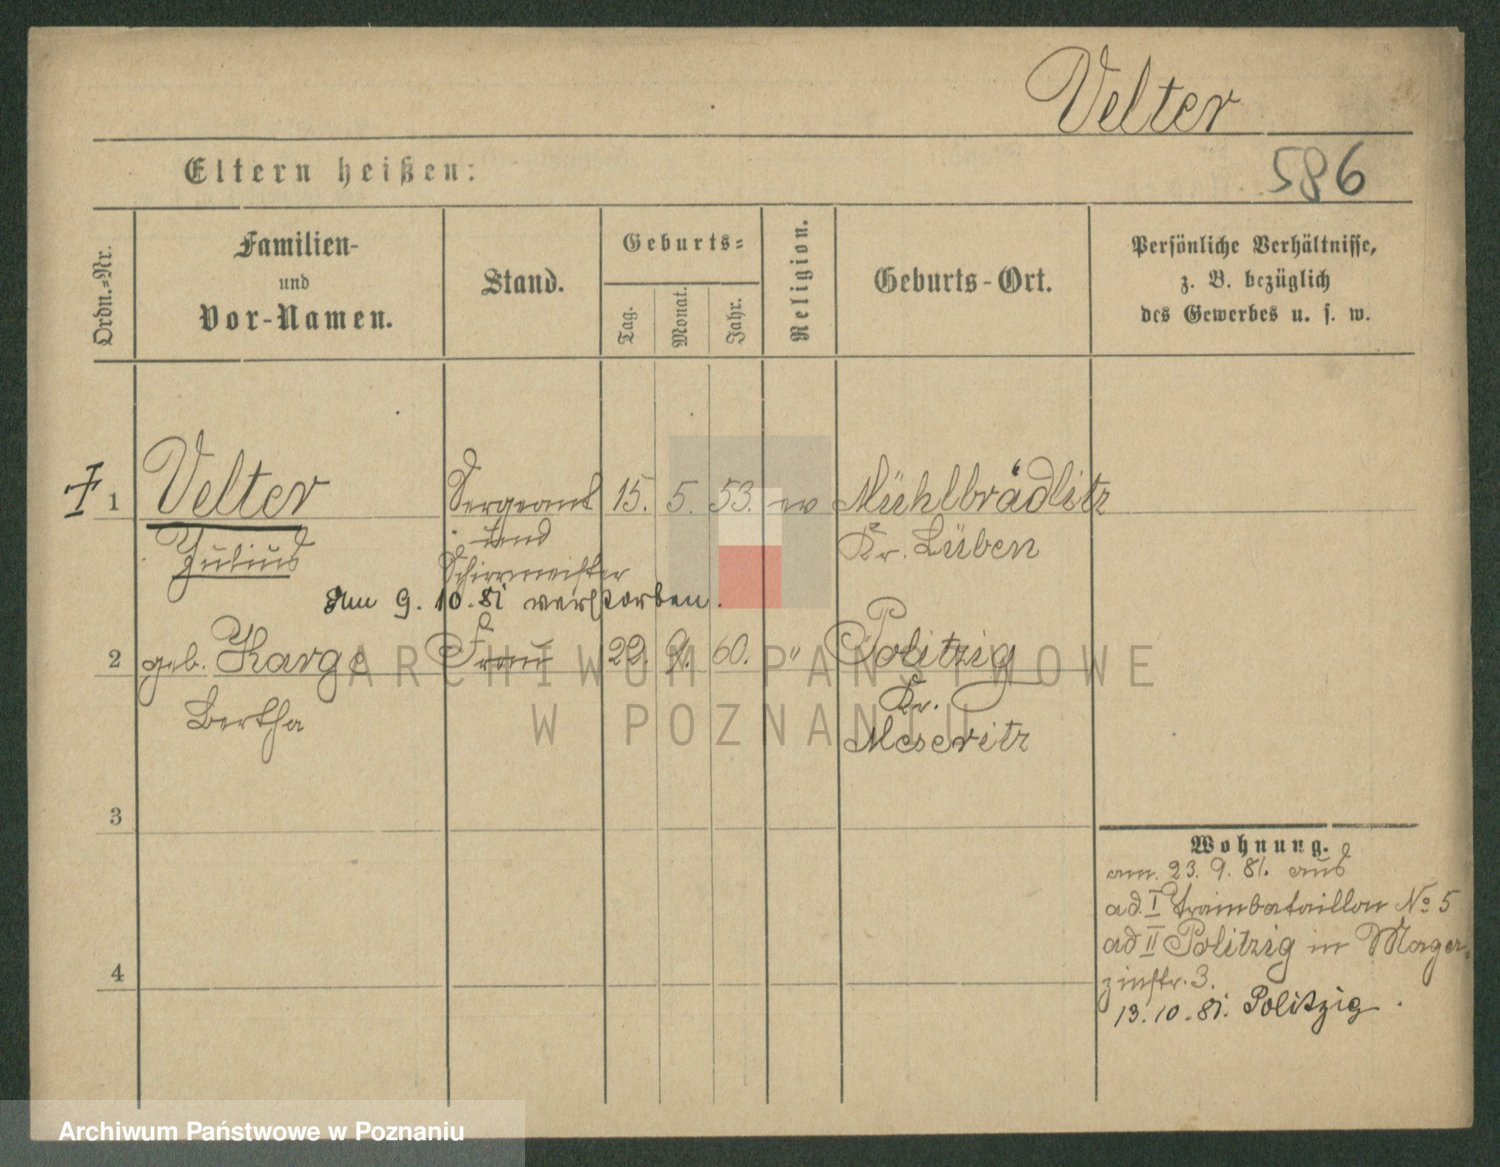 Velter
586
Eltern heißen:
Ordn.=Nr.
Familien-
und
Vor-Namen.
Stand.
Geburts=
Tag.
Monat.
Jahr.
Religion.
Geburts-Ort.
Persönliche Verhältnisse,
z. B. bezüglich
des Gewerbes u. s. w.
1 Velter Sergeant 15. 5. 53. ev Mühlbrädlitz
Julius und Kr. Lüben
Schirrmeister
Am 9. 10. 81 verstorben.
2 geb. Karge Frau 22. 9. 60. " Politzig
Bertha Kr.
Meseritz
3
4
Wohnung.
am. 23. 9. 81. aus
ad. I Trambataillon No 5
ad II Politzig in Maga-
zinstr. 3.
13. 10. 81. Politzig.
ARCHIWUM PAŃSTWOWE
W POZNANIU
Archiwum Państwowe w Poznaniu